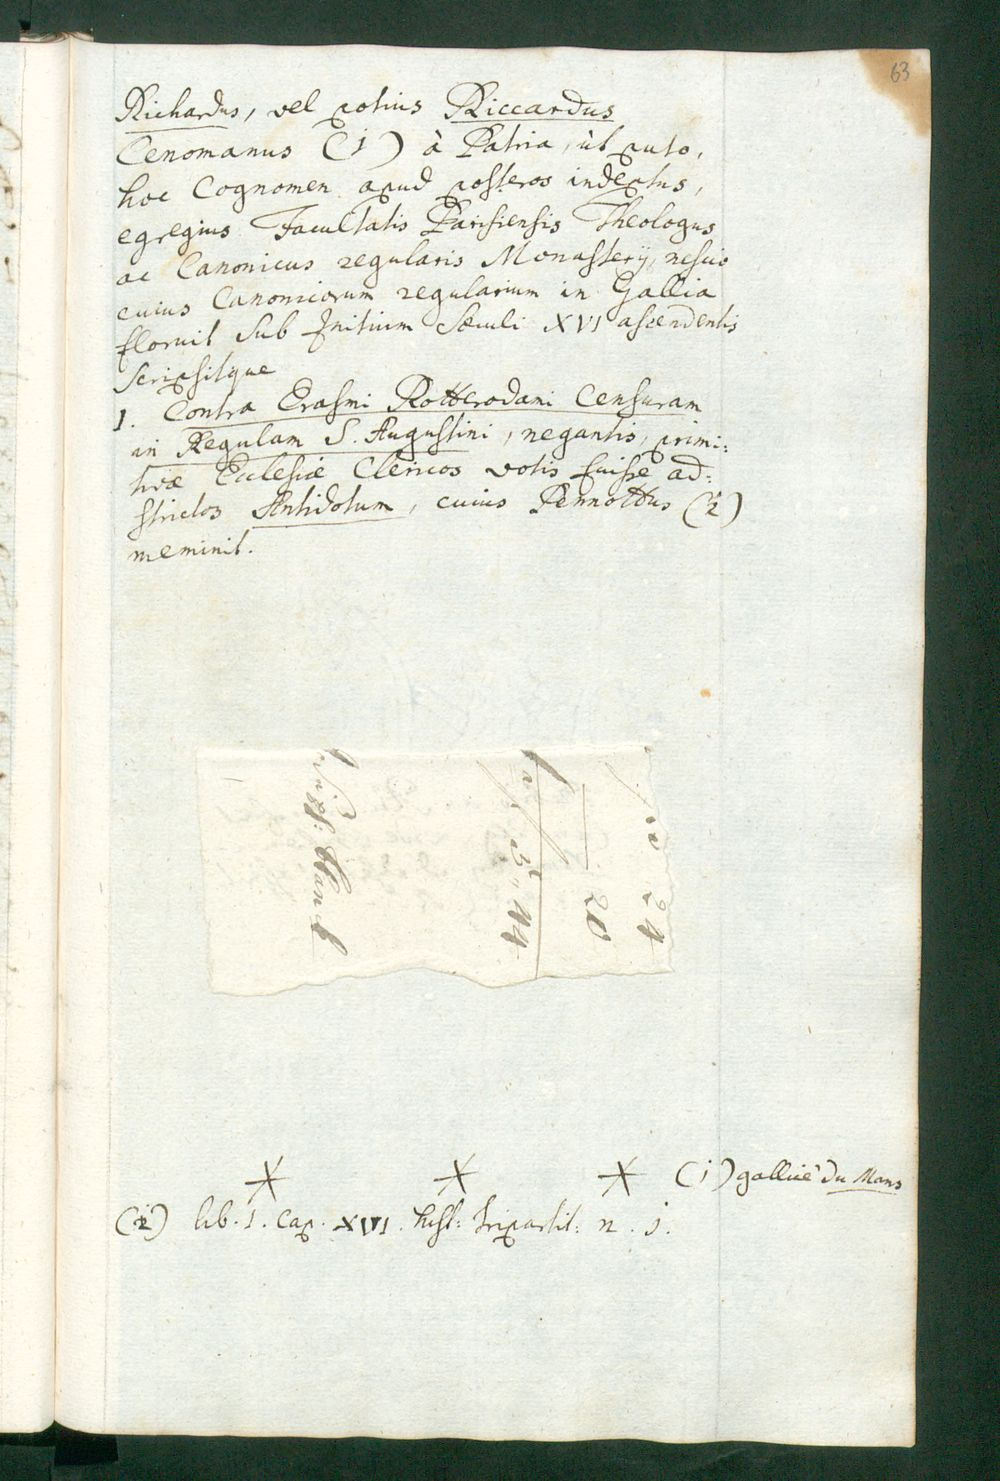 63
Richardus, vel potius Riccardus
Cenomanus (1) à Patria, ùt puto,
hoc Cognomen apud posteros indeptus,
egregius Facultatis Parisiensis Theologus
ac Canonicus regularis Monasterÿ, nescio
cuius Canonicorum regularium in Gallia
floruit sub Initium Sæculi XVI ascendentis
scripsitque
1. Contra Erasmi Rotterodami Censuram
in Regulam S. Augustini, negantis, primi:
tivæ Ecclesiæ Clericos votis fuisse ad:
strictos Antidotum, cuius Pennottus (2)
meminit.
24
20
3,, 44
(1) gallicè du Mans
(2) lib. 1. Cap. XVI. hist: Tripartit: n. 1.